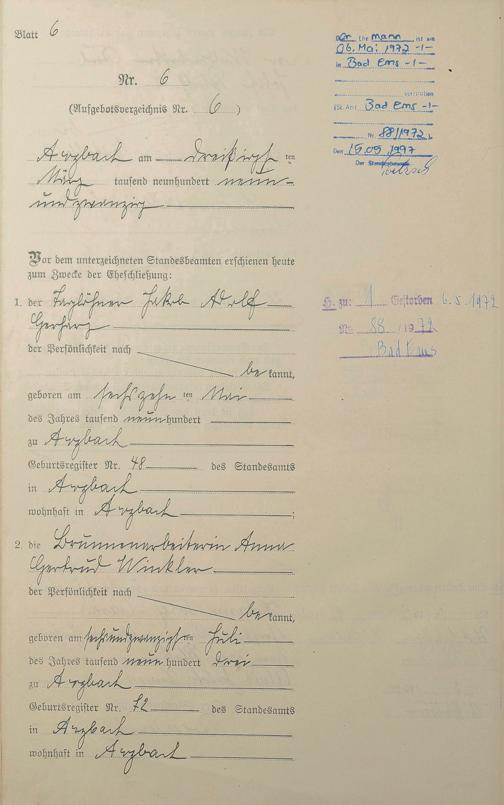 Blatt 6
Nr. 6
(Aufgebotsverzeichnis Nr. 6)
Arzbach am dreißigsten
März tausend neunhundert neun-
undzwanzig
Vor dem unterzeichneten Standesbeamten erschienen heute
zum Zwecke der Eheschließung:
1. der Taglöhner Jakob Adolf
Gerharz
der Persönlichkeit nach
be kannt,
geboren am sechszehn ten Mai
des Jahres tausend neunhundert
zu Arzbach
Geburtsregister Nr. 48 des Standesamts
in Arzbach
wohnhaft in Arzbach ;
2. die Brunnenarbeiterin Anna
Gertrud Winkler
der Persönlichkeit nach
be kannt,
geboren am sechsundzwanzigsten Juli
des Jahres tausend neun hundert drei
zu Arzbach
Geburtsregister Nr. 72 des Standesamts
in Arzbach
wohnhaft in Arzbach
Der Ehemann ist am
06. Mai 1972 -/-
in Bad Ems -/-
verstorben
(St. Amt Bad Ems -/-
Nr. 88/1972)
Den
Der
H. zu: 1 Gestorben 6.5.1972
Nr. 88 / 1972
Bad Ems